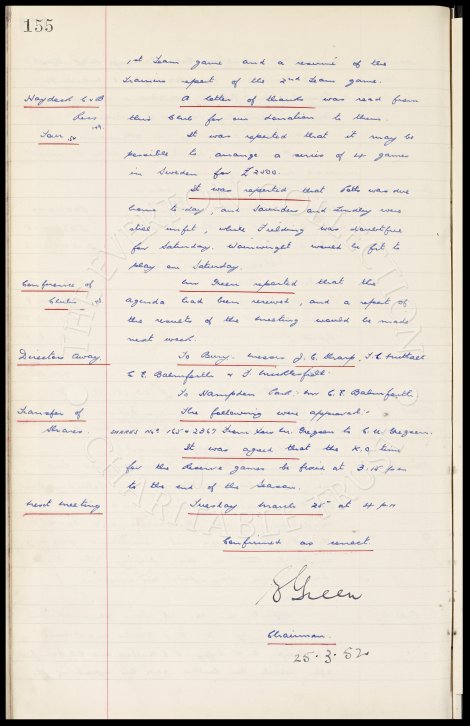 155
1st Team game and a resumé of the
Trainers report of the 2nd Team game.
Haydock C & B A letter of thanks was read from
this Club for our donation to them.
Tour It was reported that it may be
possible to arrange a series of 4 games
in Sweden for £2500.
It was reported that Potts was due
home to-day, and Saunders and Lindley were
still unfit, while Fielding was doubtful
for Saturday. Wainwright would be fit to
play on Saturday.
Conference of Mr Green reported that the
Clubs agenda had been received, and a report of
the results of the meeting would be made
next week.
Directors Away. To Bury. Messrs J. C. Sharp, T. C. Nuttall
C. E. Balmforth & F. Micklesfield.
To Hampden Park. Mr C. E. Balmforth.
Transfer of The following were approved:-
Shares. SHARES Nos 165 & 2367 From Gregson to C. W. Gregson.
It was agreed that the K.O. time
for the Reserve games be fixed at 3.15 pm
to the end of the season.
Next meeting Tuesday March 25th at 4 pm
Confirmed as correct.
Green
Chairman.
25.3.52
THE EVERTON COLLECTION
CHARITABLE TRUST